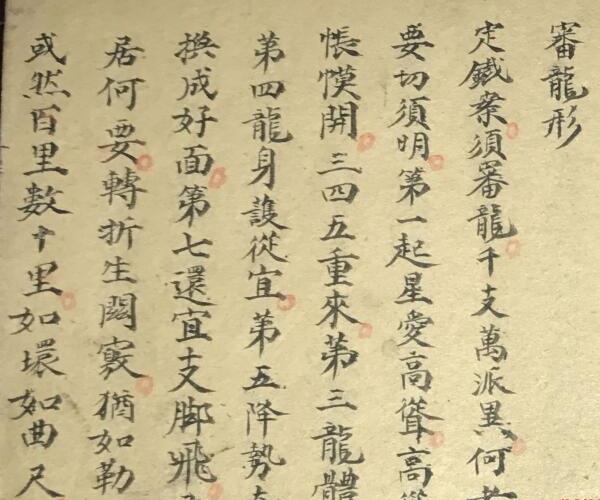 審龍形
定鐵案須審龍千支萬派異何
要切須明第一起星愛高聳高
帳幙開三四五重來第三龍體
第四龍身護從宜第五降勢
換成好面第七還宜支脚飛
居何要轉折生闔竅猶如勒
或然百里數十里如環如曲尺